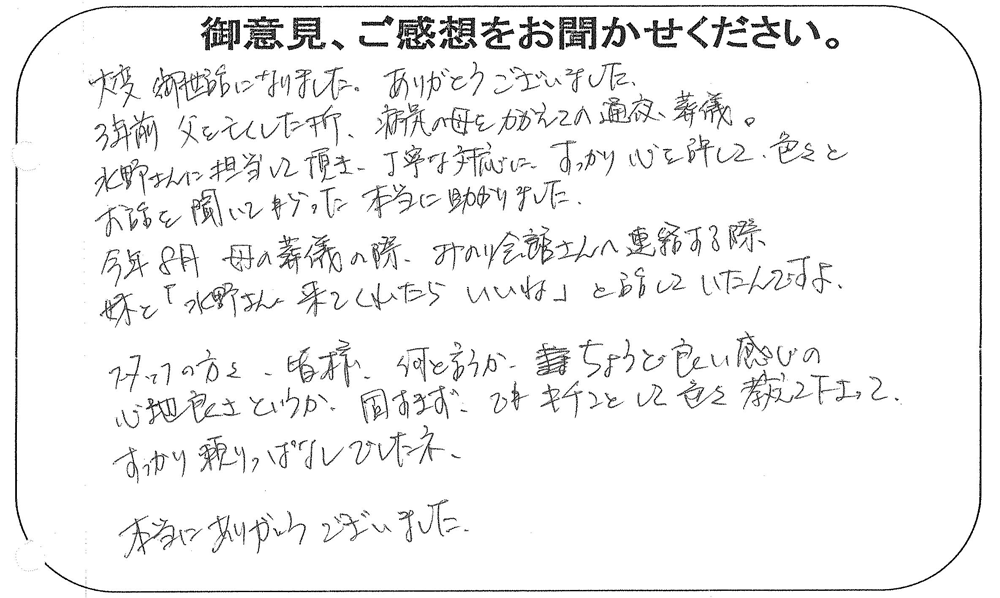 御意見、ご感想をお聞かせください。
大変 御世話になりました。ありがとうございました。
3年前 父を亡くした折、病気の母をかかえての通夜、葬儀。
水野さんに担当して頂き、丁寧な対応に、すっかり心を許して、色々と
お話を聞いてもらった 本当に助かりました。
今年8月 母の葬儀の際、みのり会館さんへ連絡する際、
妹と「水野さんに来てくれたら いいね」と話して いたんですよ。
スタッフの方々、皆様、何と言うか、ちょうど良い感じの
心地良さというか、固すぎず、でも キチンとして 色々 教えて下さって、
すっかり 頼りっぱなしでしたネ、
本当にありがとう ございました。